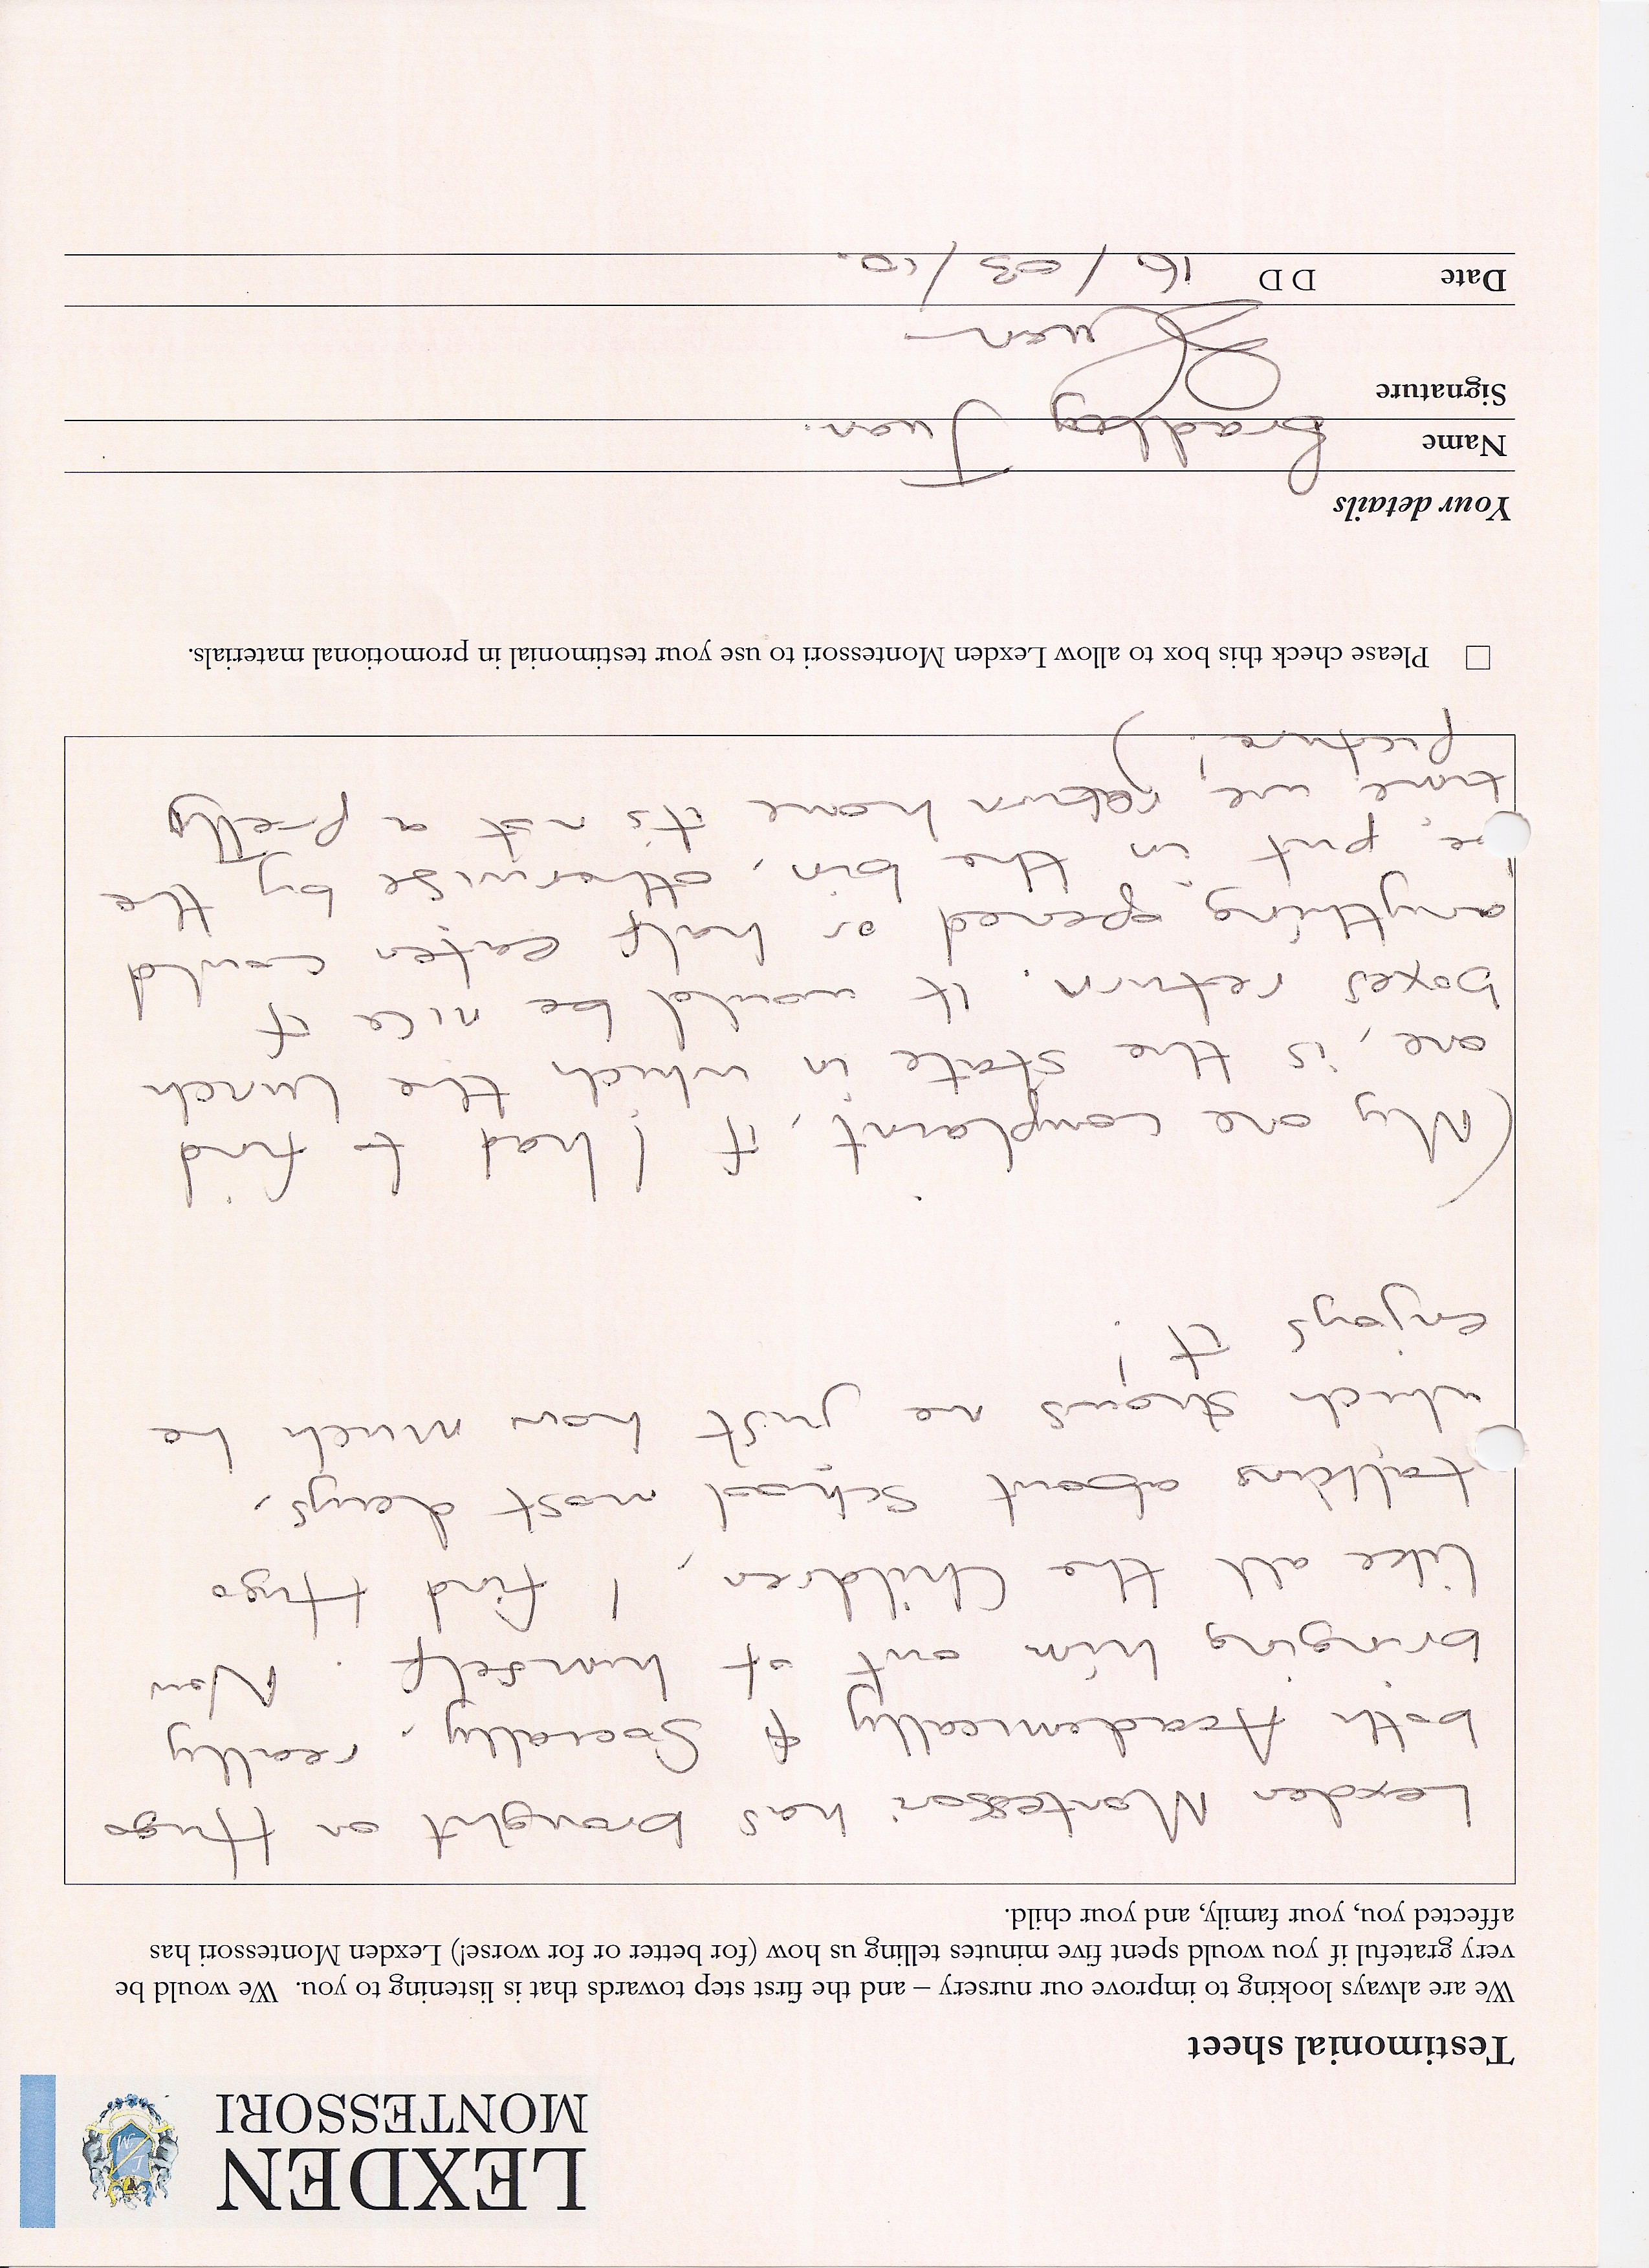 LEXDEN
MONTESSORI
Testimonial sheet
We are always looking to improve our nursery – and the first step towards that is listening to you. We would be
very grateful if you would spent five minutes telling us how (for better or for worse!) Lexden Montessori has
affected you, your family, and your child.
Lexden Montessori has brought on Hugo
both Academically & Socially, really
bringing him out of himself. Now
like all the Children, I find Hugo
talking about School most days,
which shows me just how much he
enjoys it!
(My one complaint, if I had to find
one, is the state in which the lunch
boxes return. It would be nice if
anything opened or half eaten could
be put in the bin, otherwise by the
time we return home it's not a pretty
picture!)
Please check this box to allow Lexden Montessori to use your testimonial in promotional materials.
Your details
Name Bradley
Signature
Date DD 16/03/10.